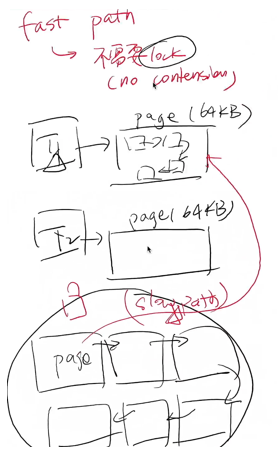 fast path
不需要lock
(no contension)
page (64KB)
T1
page(64KB)
T2
(slow path)
page